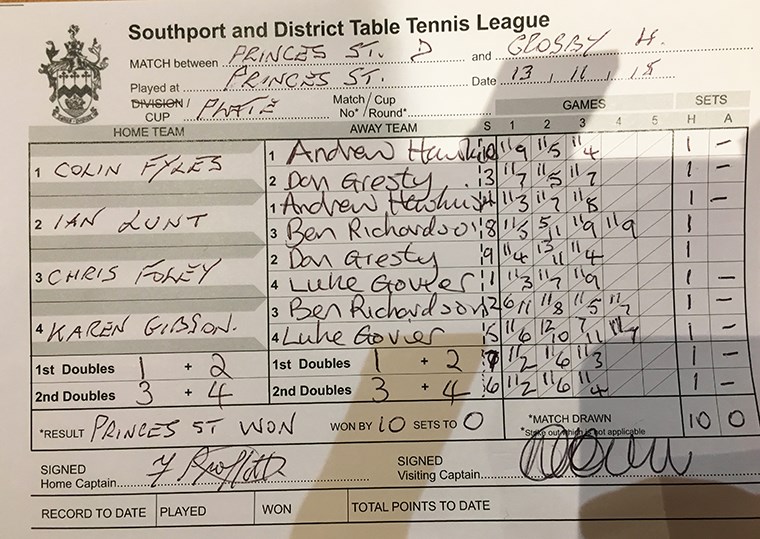 Southport and District Table Tennis League
MATCH between PRINCES ST. D and CROSBY H.
Played at PRINCES ST. Date 13, 11, 15
DIVISION / CUP PLATE Match/Cup No*/Round* GAMES SETS
HOME TEAM AWAY TEAM S 1 2 3 4 5 H A
1 COLIN FYLES 1 Andrew 10 11/9 11/5 11/4 1 -
2 Dan Gresty 3 11/7 11/5 11/7 1 -
2 IAN LUNT 1 Andrew 11/3 11/7 11/8 1 -
3 Ben Richardson 8 11/5 5/11 11/9 11/9 1
3 CHRIS FOLEY 2 Dan Gresty 9 11/4 13/11 11/4 1
4 Luke Govier 1 11/3 11/7 11/9 1 -
4 KAREN GIBSON. 3 Ben Richardson 2 6/11 11/8 11/5 11/7 1 -
4 Luke Govier 5 11/6 12/10 7/11 11/7 1 -
1st Doubles 1 + 2 1st Doubles 1 + 2 7 11/2 11/6 11/3 1 -
2nd Doubles 3 + 4 2nd Doubles 3 + 4 6 11/2 11/6 11/4 1 -
*RESULT PRINCES ST WON WON BY 10 SETS TO 0 *MATCH DRAWN 10 0
*Strike out which is not applicable
SIGNED
Home Captain
SIGNED
Visiting Captain
RECORD TO DATE PLAYED WON TOTAL POINTS TO DATE